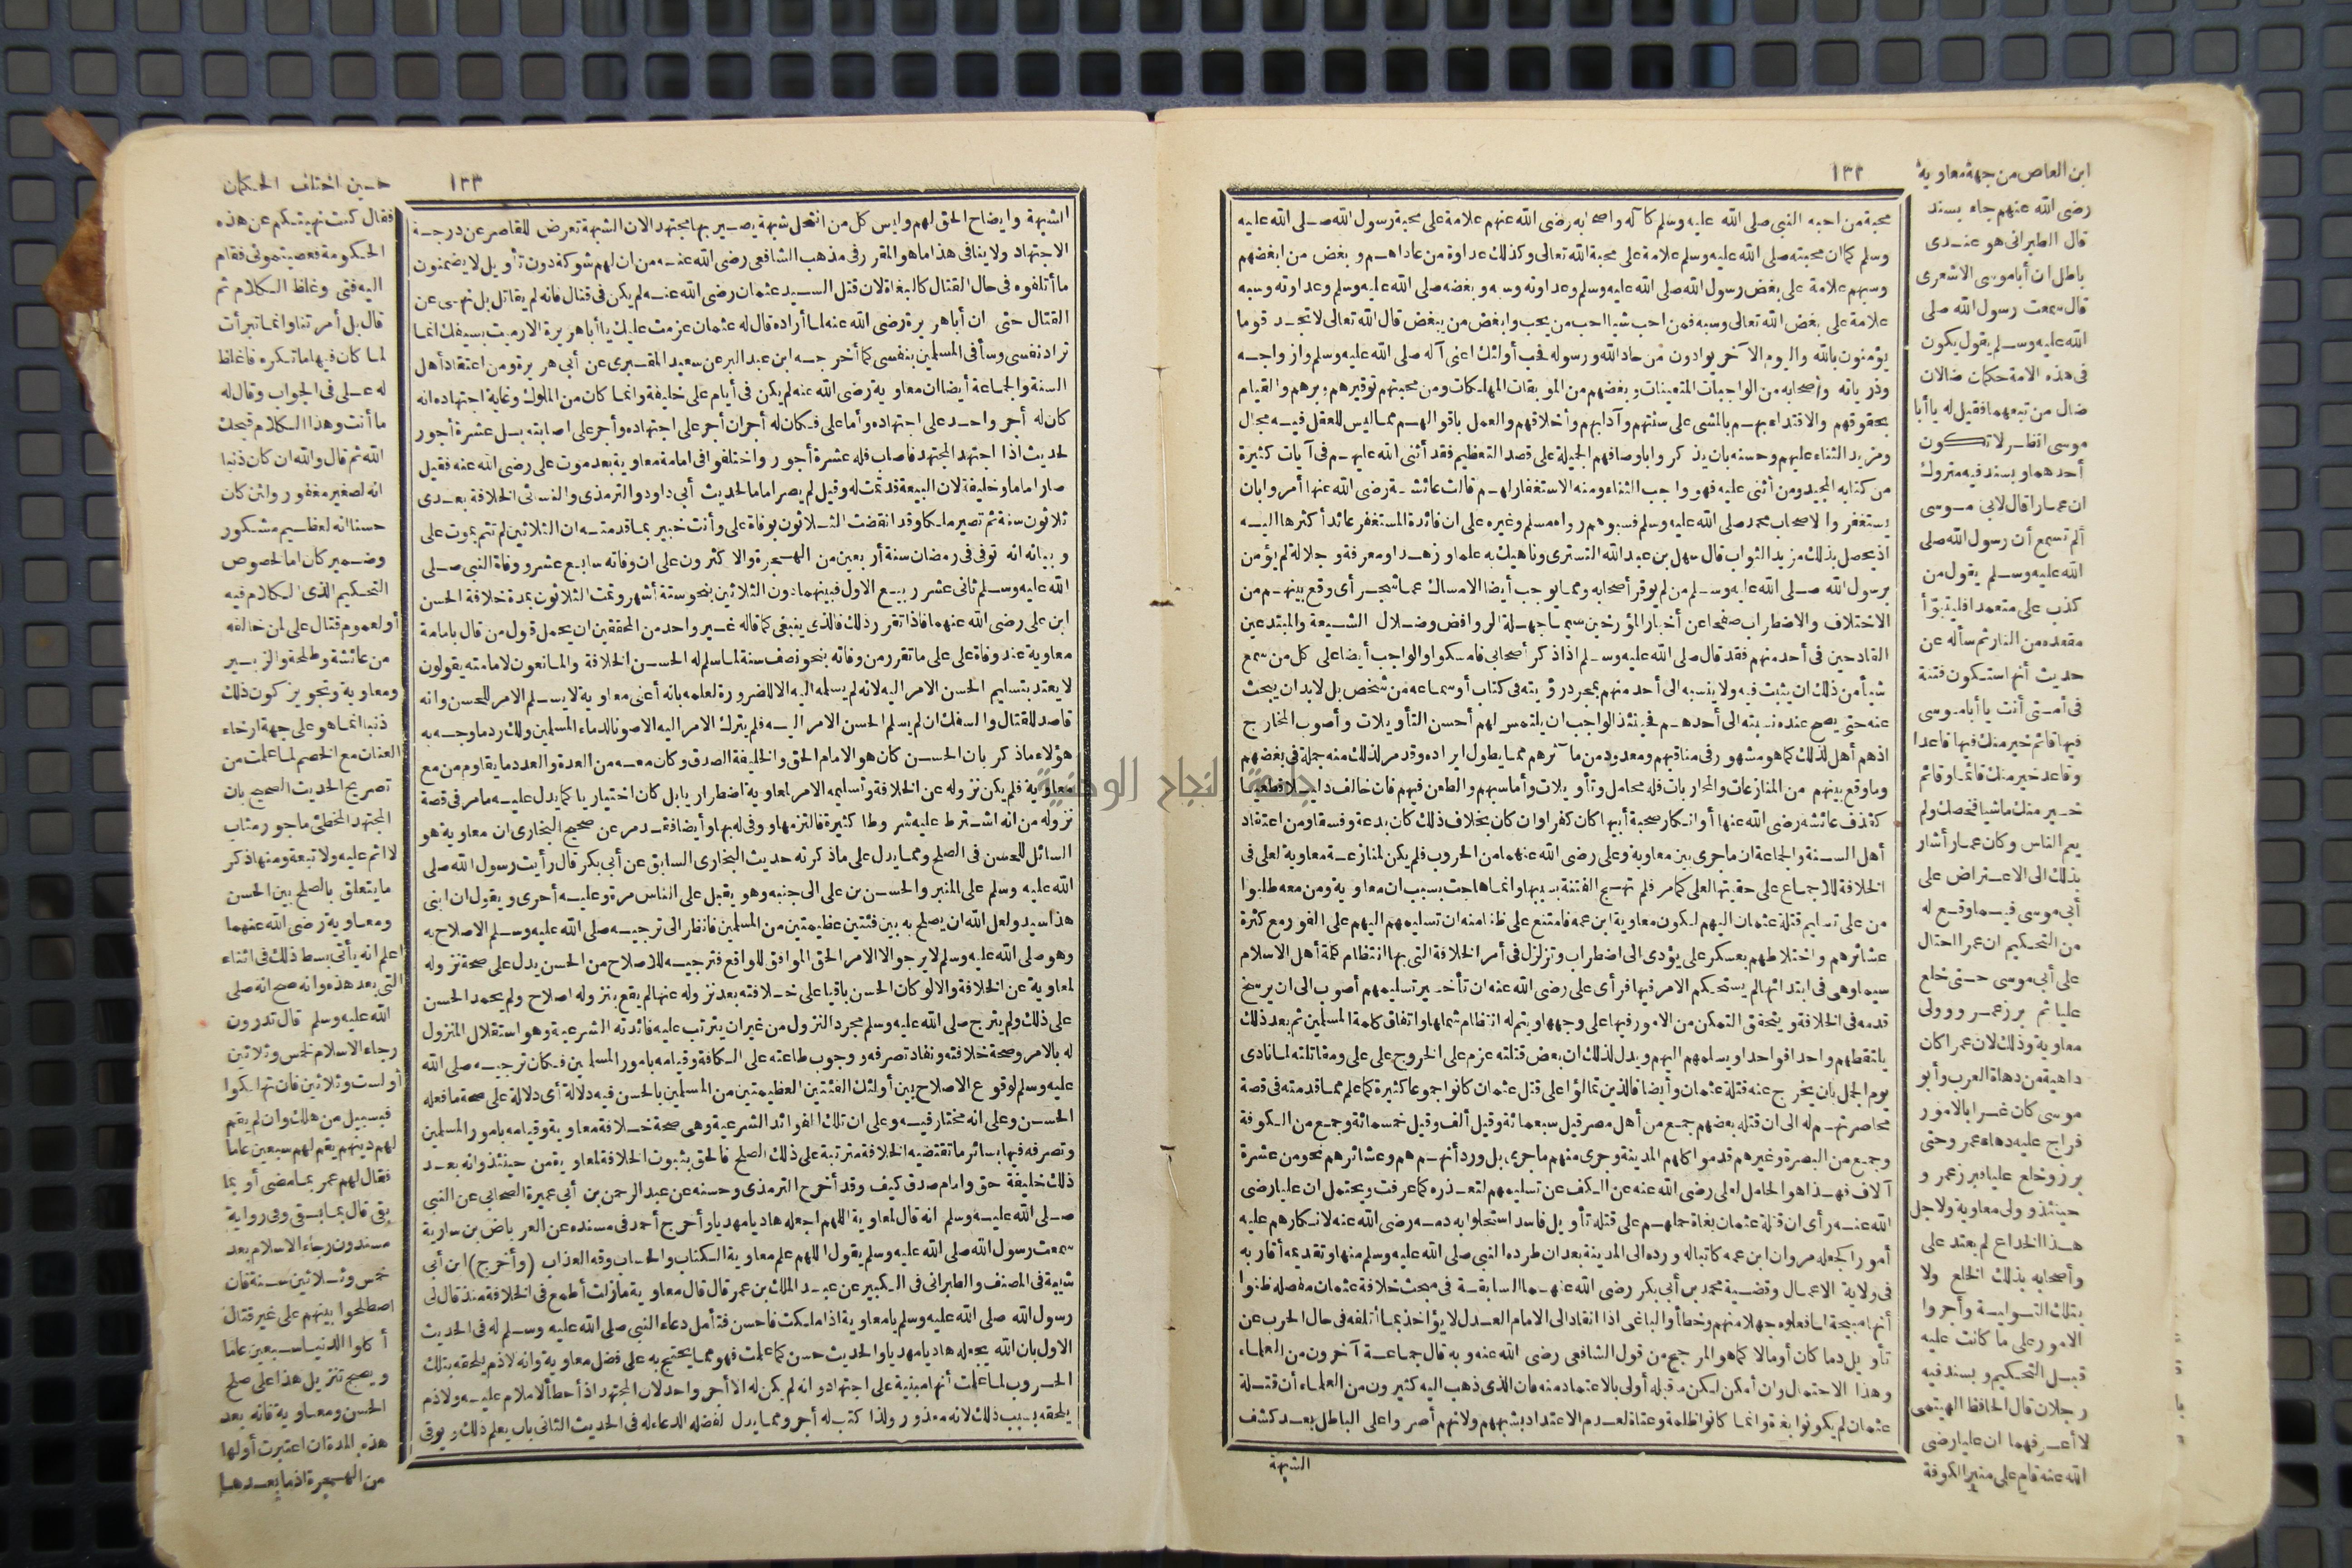 ١٣٢
محبة من احبه النبي صلى الله عليه وسلم كآله وأصحابه رضى الله عنهم علامة على محبة رسول الله صلى الله عليه
وسلم كما ان محبته صلى الله عليه وسلم علامة على محبة الله تعالى وكذلك عداوة من عاداهم وبغض من ابغضهم
وسبهم علامة على بغض رسول الله صلى الله عليه وسلم وعداوته وسبه وبغضه صلى الله عليه وسلم وعداوته وسبه
علامة على بغض الله تعالى وسبه فمن احب شيا احب من يحب وابغض من يبغض قال الله تعالى لا تجد قوما
يؤمنون بالله واليوم الآخر يوادون من حاد الله ورسوله فحب أولئك اعنى آله صلى الله عليه وسلم وازواجه
وذرياته وأصحابه من الواجبات المتعينات وبغضهم من الموبقات المهلكات ومن محبتهم توقيرهم وبرهم والقيام
بحقوقهم والاقتداء بهم بالمشى على سنتهم وآدابهم وأخلاقهم والعمل باقوالهم مما ليس للعقل فيه مجال
ومزيد الثناء عليهم وحسنه بان يذكروا باوصافهم الجميلة على قصد التعظيم فقد أثنى الله عليهم فى آيات كثيرة
من كتابه المجيد ومن أثنى عليه فهو واجب الثناء ومنه الاستغفار لهم قالت عائشة رضى الله عنها أمروا بان
يستغفروا لاصحاب محمد صلى الله عليه وسلم فسبوهم رواه مسلم وغيره على ان فائدة المستغفر عائد أكثرها اليه
اذ يحصل بذلك مزيد الثواب قال سهل بن عبد الله التسترى وناهيك به علما وزهدا ومعرفة وجلالة لم يؤمن
برسول الله صلى الله عليه وسلم من لم يوقر أصحابه ومما يوجب أيضا الامساك عما شجر أى وقع بينهم من
الاختلاف والاضطراب صفحا عن أخبار المؤرخين سيما جهلة الروافض وضلال الشيعة والمبتدعين
القادحين فى أحد منهم فقد قال صلى الله عليه وسلم اذا ذكر أصحابى فامسكوا والواجب أيضا على كل من سمع
شيأ من ذلك ان يثبت فيه ولا ينسبه الى أحد منهم بمجرد رؤيته فى كتاب أو سماعه من شخص بل لابد ان يبحث
عنه حتى يصح عنده نسبته الى أحدهم فحينئذ الواجب ان يلتمس لهم أحسن التأويلات وأصوب المخارج
اذ هم أهل لذلك كما هو مشهور فى مناقبهم ومعدود من مآثرهم مما يطول ايراده وقد مر لذلك منه جملة فى بعضهم
وما وقع بينهم من المنازعات والمحاربات فله محامل وتأويلات وأما سبهم والطعن فيهم فان خالف دليلا قطعيا
كقذف عائشة رضى الله عنها أو انكار صحبة أبيها كان كفرا وان كان بخلاف ذلك كان بدعة وفسقا ومن اعتقاد
أهل السنة والجماعة ان ما جرى بين معاوية وعلى رضى الله عنهما من الحروب فلم يكن لمنازعة معاوية لعلى فى
الخلافة للاجماع على حقيتها لعلى كما مر فلم تهيج الفتنة بسببها وانما هاجت بسبب ان معاوية ومن معه طلبوا
من على تسليم قتلة عثمان اليهم لكون معاوية ابن عمه فامتنع على ظنا منه ان تسليمهم اليهم على الفور مع كثرة
عشائرهم واختلاطهم بعسكر على يؤدى الى اضطراب وتزلزل فى أمر الخلافة التى بها انتظام كلمة أهل الاسلام
سيما وهى فى ابتدائها لم يستحكم الامر فيها فرأى على رضى الله عنه ان تأخير تسليمهم أصوب الى ان يرسخ
قدمه فى الخلافة ويتحقق التمكن من الامور فيها على وجهها ويتم له انتظام شملها واتفاق كلمة المسلمين ثم بعد ذلك
يلتقطهم واحدا فواحدا ويسلمهم اليهم ويدل لذلك ان بعض قتلته عزم على الخروج على على ومقاتلته لما نادى
يوم الجمل بان يخرج عنه قتلة عثمان وأيضا فالذين تمالؤا على قتل عثمان كانوا جموعا كثيرة كما علم مما قدمته فى قصة
محاصرتهم له الى ان قتله بعضهم جمع من أهل مصر قيل سبعمائة وقيل ألف وقيل خمسمائة وجمع من الكوفة
وجميع من البصرة وغيرهم قدموا كلهم المدينة وجرى منهم ما جرى بل ورد أنهم هم وعشائرهم نحو من عشرة
آلاف فهذا هو الحامل لعلى رضى الله عنه عن الكف عن تسليمهم لتعذره كما عرفت ويحتمل ان عليا رضى
الله عنه رأى ان قتلة عثمان بغاة حملهم على قتله تأويل فاسد استحلوا به دمه رضى الله عنه لانكارهم عليه
أمورا كجعله مروان ابن عمه كاتبا له ورده الى المدينة بعد ان طرده النبى صلى الله عليه وسلم منها وتقديمه أقاربه
فى ولاية الاعمال وقضية محمد بن أبى بكر رضى الله عنهما السابقة فى مبحث خلافة عثمان مفصله ظنوا
أنها مبيحة لما فعلوه جهلا منهم وخطأ والباغى اذا انقاد الى الامام العدل لا يؤاخذ بما أتلفه فى حال الحرب عن
تأويل دما كان أو مالا كما هو المرجح من قول الشافعى رضى الله عنه وبه قال جماعة آخرون من العلماء
وهذا الاحتمال وان أمكن لكن ما قبله أولى بالاعتماد منه فان الذى ذهب اليه كثيرون من العلماء أن قتلة
عثمان لم يكونوا بغة وانما كانوا ظلمة وعتاة لعدم الاعتداد بشبههم ولانهم أصروا على الباطل بعد كشف
الشبهة
ابن العاص من جهة معاوية
رضى الله عنهم جاء بسند
قال الطبرانى هو عندى
باطل ان أبا موسى الاشعرى
قال سمعت رسول الله صلى
الله عليه وسلم يقول يكون
فى هذه الامة حكمان ضالان
ضال من تبعهما فقيل له يا أبا
موسى انظر لا تكون
أحدهما وبسند فيه متروك
ان عمارا قال لابى موسى
ألم تسمع أن رسول الله صلى
الله عليه وسلم يقول من
كذب على متعمدا فليتبوّأ
مقعده من النار ثم سأله عن
حديث أنها ستكون فتنة
فى أمتى أنت يا أبا موسى
فيها قائم خير منك فيها قاعدا
وقاعد خير منك قائما وقائم
خير منك ماشيا فخصك ولم
يعم الناس وكان عمار أشار
بذلك الى الاعتراض على
أبى موسى فيما وقع له
من التحكيم ان عمرا احتال
على أبى موسى حتى خلع
عليا ثم برز عمرو وولى
معاوية وذلك لان عمرا كان
داهية من دهاة العرب وأبو
موسى كان غرا بالامور
فراج عليه دهاء عمرو حتى
برز وخلع عليا فبرز عمرو
حينئذ وولى معاوية ولاجل
هذا الخداع لم يعتد على
وأصحابه بذلك الخلع ولا
بتلك التولية وأجروا
الامور على ما كانت عليه
قبل التحكيم وبسند فيه
رجلان قال الحافظ الهيتمى
لا أعرفهما ان عليا رضى
الله عنه قام على منبر الكوفة
١٣٣
الشبهة وايضاح الحق لهم وليس كل من انتحل شبهة يصير بها مجتهدا لان الشبهة تعرض للقاصر عن درجة
الاجتهاد ولا ينافى هذا ما هو المقرر فى مذهب الشافعى رضى الله عنه من ان لهم شوكة دون تأويل لا يضمنون
ما أتلفوه فى حال القتال كالبغاة لان قتل السيد عثمان رضى الله عنه لم يكن فى قتال فانه لم يقاتل بل نهى عن
القتال حتى ان أبا هريرة رضى الله عنه لما أراده قال له عثمان عزمت عليك يا أبا هريرة الا رميت بسيفك انما
تراد نفسى وسأقى المسلمين بنفسى كما أخرجه ابن عبد البر عن سعيد المقبرى عن أبى هريرة ومن اعتقاد أهل
السنة والجماعة أيضا ان معاوية رضى الله عنه لم يكن فى أيام على خليفة وانما كان من الملوك وغاية اجتهاده انه
كان له أجر واحد على اجتهاده وأما على فكان له أجران أجر على اجتهاده وأجر على اصابته بل عشرة أجور
لحديث اذا اجتهد المجتهد فاصاب فله عشرة أجور واختلفوا فى امامة معاوية بعد موت على رضى الله عنه فقيل
صار اماما وخليفة لان البيعة قد تمت له وقيل لم يصر اماما لحديث أبى داود والترمذى والنسائى الخلافة بعدى
ثلاثون سنة ثم تصير ملكا وقد انقضت الثلاثون بوفاة على وأنت خبير بما قدمته ان الثلاثين لم تتم بموت على
وبيانه انه توفى فى رمضان سنة أربعين من الهجرة والاكثرون على ان وفاته سابع عشر ووفاة النبى صلى
الله عليه وسلم ثانى عشر ربيع الاول فبينهما دون الثلاثين بنحو ستة أشهر وتمت الثلاثون بمدة خلافة الحسن
ابن على رضى الله عنهما فاذا تقرر ذلك فالذى ينبغى كما قاله غير واحد من المحققين ان يحمل قول من قال بامامة
معاوية عند وفاة على على ما تقرر من وفاته بنحو نصف سنة لما سلم له الحسن الخلافة والمانعون لامامته يقولون
لا يعتد بتسليم الحسن الامر اليه لانه لم يسلمه اليه الا للضرورة لعلمه بانه أعنى معاوية لا يسلم الامر للحسن وانه
قاصد للقتال والسفك ان لم يسلم الحسن الامر اليه فلم يترك الامر اليه الا صونا لدماء المسلمين ولك رد ما وجه به
هؤلاء ما ذكر بان الحسن كان هو الامام الحق والخليفة الصدق وكان معه من العدة والعدد ما يقاوم من مع
معاوية فلم يكن نزوله عن الخلافة وتسليمه الامر لمعاوية اضطراريا بل كان اختياريا كما يدل عليه ما مر فى قصة
نزوله من انه اشترط عليه شروطا كثيرة فالتزمها ووفى له بها وأيضا فقد مر عن صحيح البخارى ان معاوية هو
السائل للحسن فى الصلح ومما يدل على ما ذكرته حديث البخارى السابق عن أبى بكر قال رأيت رسول الله صلى
الله عليه وسلم على المنبر والحسن بن على الى جنبه وهو يقبل على الناس مرة وعليه أخرى ويقول ان ابنى
هذا سيد ولعل الله ان يصلح به بين فئتين عظيمتين من المسلمين فانظر الى ترجيه صلى الله عليه وسلم الاصلاح به
وهو صلى الله عليه وسلم لا يرجو الا الامر الحق الموافق للواقع فترجيه للاصلاح من الحسن يدل على صحة نزوله
لمعاوية عن الخلافة والا لو كان الحسن باقيا على خلافته بعد نزوله عنها لم يقع بنزوله اصلاح ولم يحمد الحسن
على ذلك ولم يترج صلى الله عليه وسلم مجرد النزول من غير ان يترتب عليه فائدته الشرعية وهو استقلال المنزول
له بالامر وصحة خلافته ونفاذ تصرفه ووجوب طاعته على الكافة وقيامه بامور المسلمين فكان ترجيه صلى الله
عليه وسلم لوقوع الاصلاح بين أولئك الفئتين العظيمتين من المسلمين بالحسن فيه دلالة أى دلالة على صحة ما فعله
الحسن وعلى انه مختار فيه وعلى ان تلك الفوائد الشرعية وهى صحة خلافة معاوية وقيامه بامور المسلمين
وتصرفه فيها بسائر ما تقتضيه الخلافة مترتبة على ذلك الصلح فالحق بثبوت الخلافة لمعاوية من حينئذ وانه بعد
ذلك خليفة حق وامام صدق كيف وقد أخرج الترمذى وحسنه عن عبد الرحمن بن أبى عميرة الصحابى عن النبى
صلى الله عليه وسلم انه قال لمعاوية اللهم اجعله هاديا مهديا وأخرج أحمد فى مسنده عن العرباض بن سارية
سمعت رسول الله صلى الله عليه وسلم يقول اللهم علم معاوية الكتاب والحساب وقه العذاب (وأخرج) ابن أبى
شيبة فى المصنف والطبرانى فى الكبير عن عبد الملك بن عمر قال قال معاوية ما زلت أطمع فى الخلافة منذ قال لى
رسول الله صلى الله عليه وسلم يا معاوية اذا ملكت فاحسن فتأمل دعاء النبى صلى الله عليه وسلم له فى الحديث
الاول بان الله يجعله هاديا مهديا والحديث حسن كما علمت فهو مما يحتج به على فضل معاوية وانه لا ذم يلحقه بتلك
الحروب لما علمت أنها مبنية على اجتهاد وانه لم يكن له الا أجر واحد لان المجتهد اذ أخطأ لا ملام عليه ولا ذم
يلحقه بسبب ذلك لانه معذور ولذا كتب له أجر ومما يدل لفضله الدعاء له فى الحديث الثانى بان يعلم ذلك ويوقى
حين اختلف الحكمان
فقال كنت نهيتكم عن هذه
الحكومة فعصيتمونى فقام
اليه فتى وغلظ الكلام ثم
قال بل أمرتنا وانما تبرأت
لما كان فيها ما تكره فاغلظ
له على فى الجواب وقال له
ما أنت وهذا الكلام قبحك
الله ثم قال والله ان كان ذنبا
انه لصغير مغفور ولئن كان
حسنا انه لعظيم مشكور
وضمير كان اما لخصوص
التحكيم الذى الكلام فيه
أو لعموم قتال على لمن خالفه
من عائشة وطلحة والزبير
ومعاوية وتجويز كون ذلك
ذنبا انما هو على جهة ارخاء
العنان مع الخصم لما علمت من
تصريح الحديث الصحيح بان
المجتهد المخطئ ماجور مثاب
لا اثم عليه ولا تبعة ومنها ذكر
ما يتعلق بالصلح بين الحسن
ومعاوية رضى الله عنهما
اعلم انه يأتى بسط ذلك فى اثناء
التى بعد هذه وانه صح انه صلى
الله عليه وسلم قال تدرون
رجاء الاسلام لخمس وثلاثين
أو لست وثلاثين فان تهلكوا
فبسبيل من هلك وان لم يقم
لهم دينهم يقم لهم سبعين عاما
فقال لهم عمر بما مضى أو بما
بقى قال بما بقى وفى رواية
رجاء الاسلام بعد
خمس وثلاثين سنة فان
اصطلحوا بينهم على غير قتال
أكلوا الدنيا سبعين عاما
ويصح تنزيل هذا على صلح
الحسن ومعاوية فانه بعد
هذه المدة ان اعتبرت أولها
من الهجرة اذ ما بعدها
جامعة النجاح الوطنية